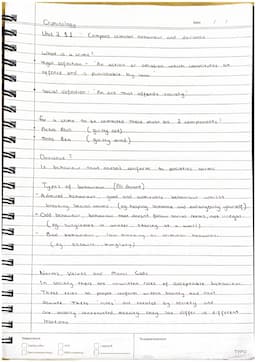 Criminology
Date / /
Unit 2 1.1 : Compare criminal behaviour and deviance
What is a crime?
Legal definition - 'An action or omission which constitutes an
offence and is punishable by law'
Social definition 'An act that offends society'
For a crime to be committed there must be 2 components:
Actus Reus (guilty act)
Mens Rea (guilty mind)
Deviance?
Is behaviour that doesn't conform to societies norms
Types of behaviour (of deviant)
Admired behaviour - good and admirable behaviour whilst
breaking social norms. (eg helping someone and endangering yourself)
Odd behaviour - behaviour that doesn't follow social norms, not illegal.
(eg sunglasses in winter, staring at a wall)
Bad behaviour - law breaking or criminal behaviour
(eg assault, burglary)
Norms Values and Moral Codes
In society there are unwritten rules of acceptable behaviour.
These rules
society and
are socially constructed meaning they can differ in different